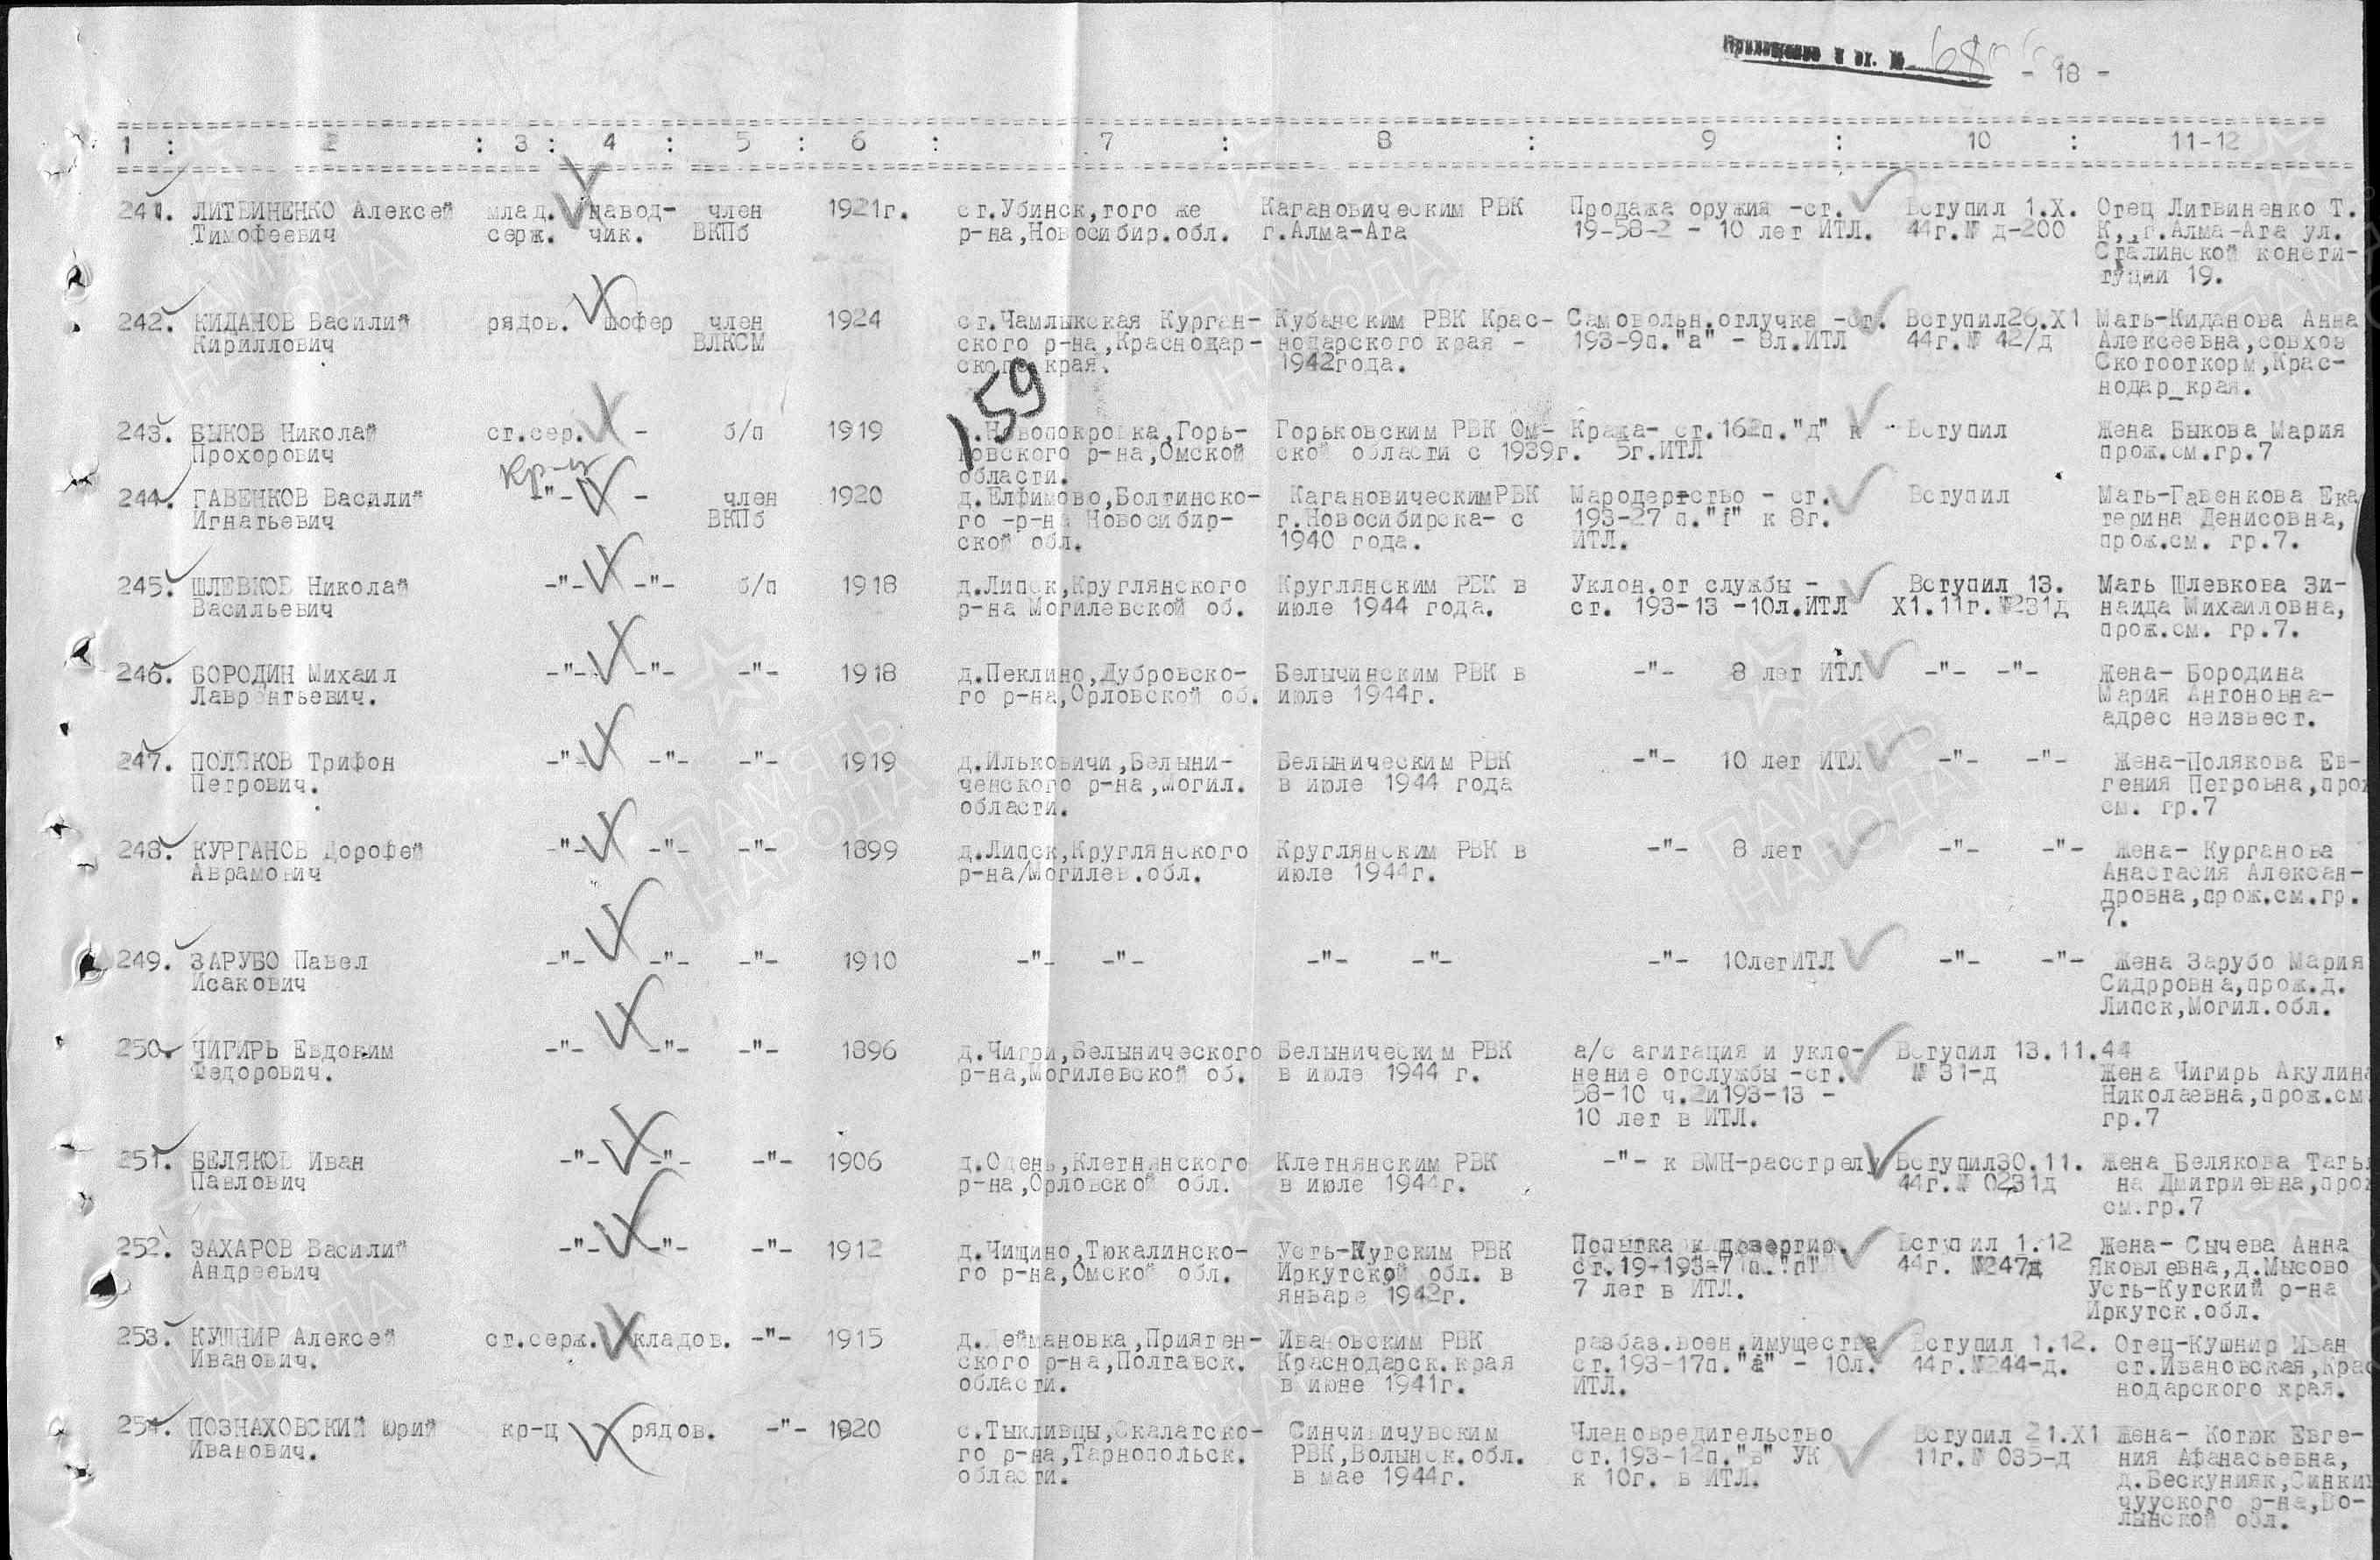 Приложение к вх. № 680
- 18 -
1 : 2 : 3 : 4 : 5 : 6 : 7 : 8 : 9 : 10 : 11-12
241. ЛИТВИНЕНКО Алексей млад. навод- член 1921г. ст.Убинск,того же Кагановическим РВК Продажа оружия -ст. Вступил 1.Х. Отец Литвиненко Т.
Тимофеевич серж. чик. ВКПб р-на,Новосибир.обл. г.Алма-Ата 19-58-2 - 10 лет ИТЛ. 44г.№ д-200 К,,г.Алма-Ата ул.
Сталинской консти-
туции 19.
242. КИДАНОВ Василий рядов. шофер член 1924 ст.Чамлыкская Курган- Кубанским РВК Крас- Самовольн.отлучка -ст. Вступил26.Х1 Мать-Киданова Анна
Кириллович ВЛКСМ ского р-на,Краснодар- нодарского края - 193-9п."а" - 8л.ИТЛ 44г.№ 42/д Алексеевна,совхоз
ского края. 1942года. Скотооткорм,Крас-
нодар_края.
159
243. БЫКОВ Николай ст.сер. - б/п 1919 Новопокровка,Горь- Горьковским РВК Ом- Кража- ст.162п."д" к Вступил Жена Быкова Мария
Прохорович ковского р-на,Омской ской области с 1939г. 5г.ИТЛ прож.см.гр.7
области.
кр-ц
244. ГАВЕНКОВ Василий -"- - член 1920 д.Елфимово,Болтинско- КагановическимРВК Мародерство - ст. Вступил Мать-Гавенкова Ека
Игнатьевич ВКПб го -р-на Новосибир- г.Новосибирска- с 193-27 п."г" к 8г. терина Денисовна,
ской обл. 1940 года. ИТЛ. прож.см. гр.7.
245. ШЛЕВКОВ Николай -"- -"- б/п 1918 д.Липск,Круглянского Круглянским РВК в Уклон.от службы - Вступил 13. Мать Шлевкова Зи-
Васильевич р-на Могилевской об. июле 1944 года. ст. 193-13 -10л.ИТЛ Х1.11г.№231д наида Михайловна,
прож.см. гр.7.
246. БОРОДИН Михаил -"- -"- -"- 1918 д.Пеклино,Дубровско- Белычинским РВК в -"- 8 лет ИТЛ -"- -"- Жена- Бородина
Лаврентьевич. го р-на,Орловской об. июле 1944г. Мария Антоновна-
адрес неизвест.
247. ПОЛЯКОВ Трифон -"- -"- -"- 1919 д.Ильковичи,Белыни- Белыническим РВК -"- 10 лет ИТЛ -"- -"- Жена-Полякова Ев-
Петрович. ченского р-на,Могил. в июле 1944 года гения Петровна,прож
области. см. гр.7
248. КУРГАНОВ Дорофей -"- -"- -"- 1899 д.Липск,Круглянского Круглянским РВК в -"- 8 лет -"- -"- Жена- Курганова
Аврамович р-на/Могилев.обл. июле 1944г. Анастасия Алексан-
дровна,прож.см.гр.
7.
249. ЗАРУБО Павел -"- -"- -"- 1910 -"- -"- -"- -"- -"- 10летИТЛ -"- -"- Жена Зарубо Мария
Исакович Сидрровна,прож.д.
Липск,Могил.обл.
250. ЧИГИРЬ Евдоким -"- -"- -"- 1896 д.Чигри,Белынического Белыническим РВК а/с агитация и укло- Вступил 13.11.44
Федорович. р-на,Могилевской об. в июле 1944 г. нение отслужбы -ст. № 31-д Жена Чигирь Акулина
58-10 ч.2и193-13 - Николаевна,прож.см
10 лет в ИТЛ. гр.7
251. БЕЛЯКОВ Иван -"- -"- -"- 1906 д.Одень,Клетнянского Клетнянским РВК -"- к ВМН-расстрелу Вступил30.11. Жена Белякова Татья
Павлович р-на,Орловской обл. в июле 1944г. 44г.№ 0231д на Дмитриевна,прож
см.гр.7
252. ЗАХАРОВ Василий -"- -"- -"- 1912 д.Чищино,Тюкалинско- Усть-Кутским РВК Попытка к дезертир. Вступил 1.12 Жена- Сычева Анна
Андреевич го р-на,Омской обл. Иркутской обл. в ст.19-193-7 п."п" 44г. №247д Яковлевна,д.Мысово
январе 1942г. 7 лет в ИТЛ. Усть-Кутский р-на
Иркутск.обл.
253. КУШНИР Алексей ст.серж. кладов. -"- 1915 д.Деймановка,Прияген- Ивановским РВК разбаз.воен.имущества Вступил 1.12. Отец-Кушнир Иван
Иванович. ского р-на,Полтавск. Краснодарск.края ст.193-17п."а" - 10л. 44г.№244-д. ст.Ивановская,Крас
области. в июне 1941г. ИТЛ. нодарского края.
254. ПОЗНАХОВСКИЙ Юрий кр-ц рядов. -"- 1920 с.Тыкливцы,Скалатско- Синчивичувским Членовредительство Вступил 21.Х1 Жена- Котюк Евге-
Иванович. го р-на,Тарнопольск. РВК,Волынск.обл. ст.193-12п."в" УК 11г.№ 035-д ния Афанасьевна,
области. в мае 1944г. к 10г. в ИТЛ. д.Бескунияк,Синки
чууского р-на,Во-
лынской обл.